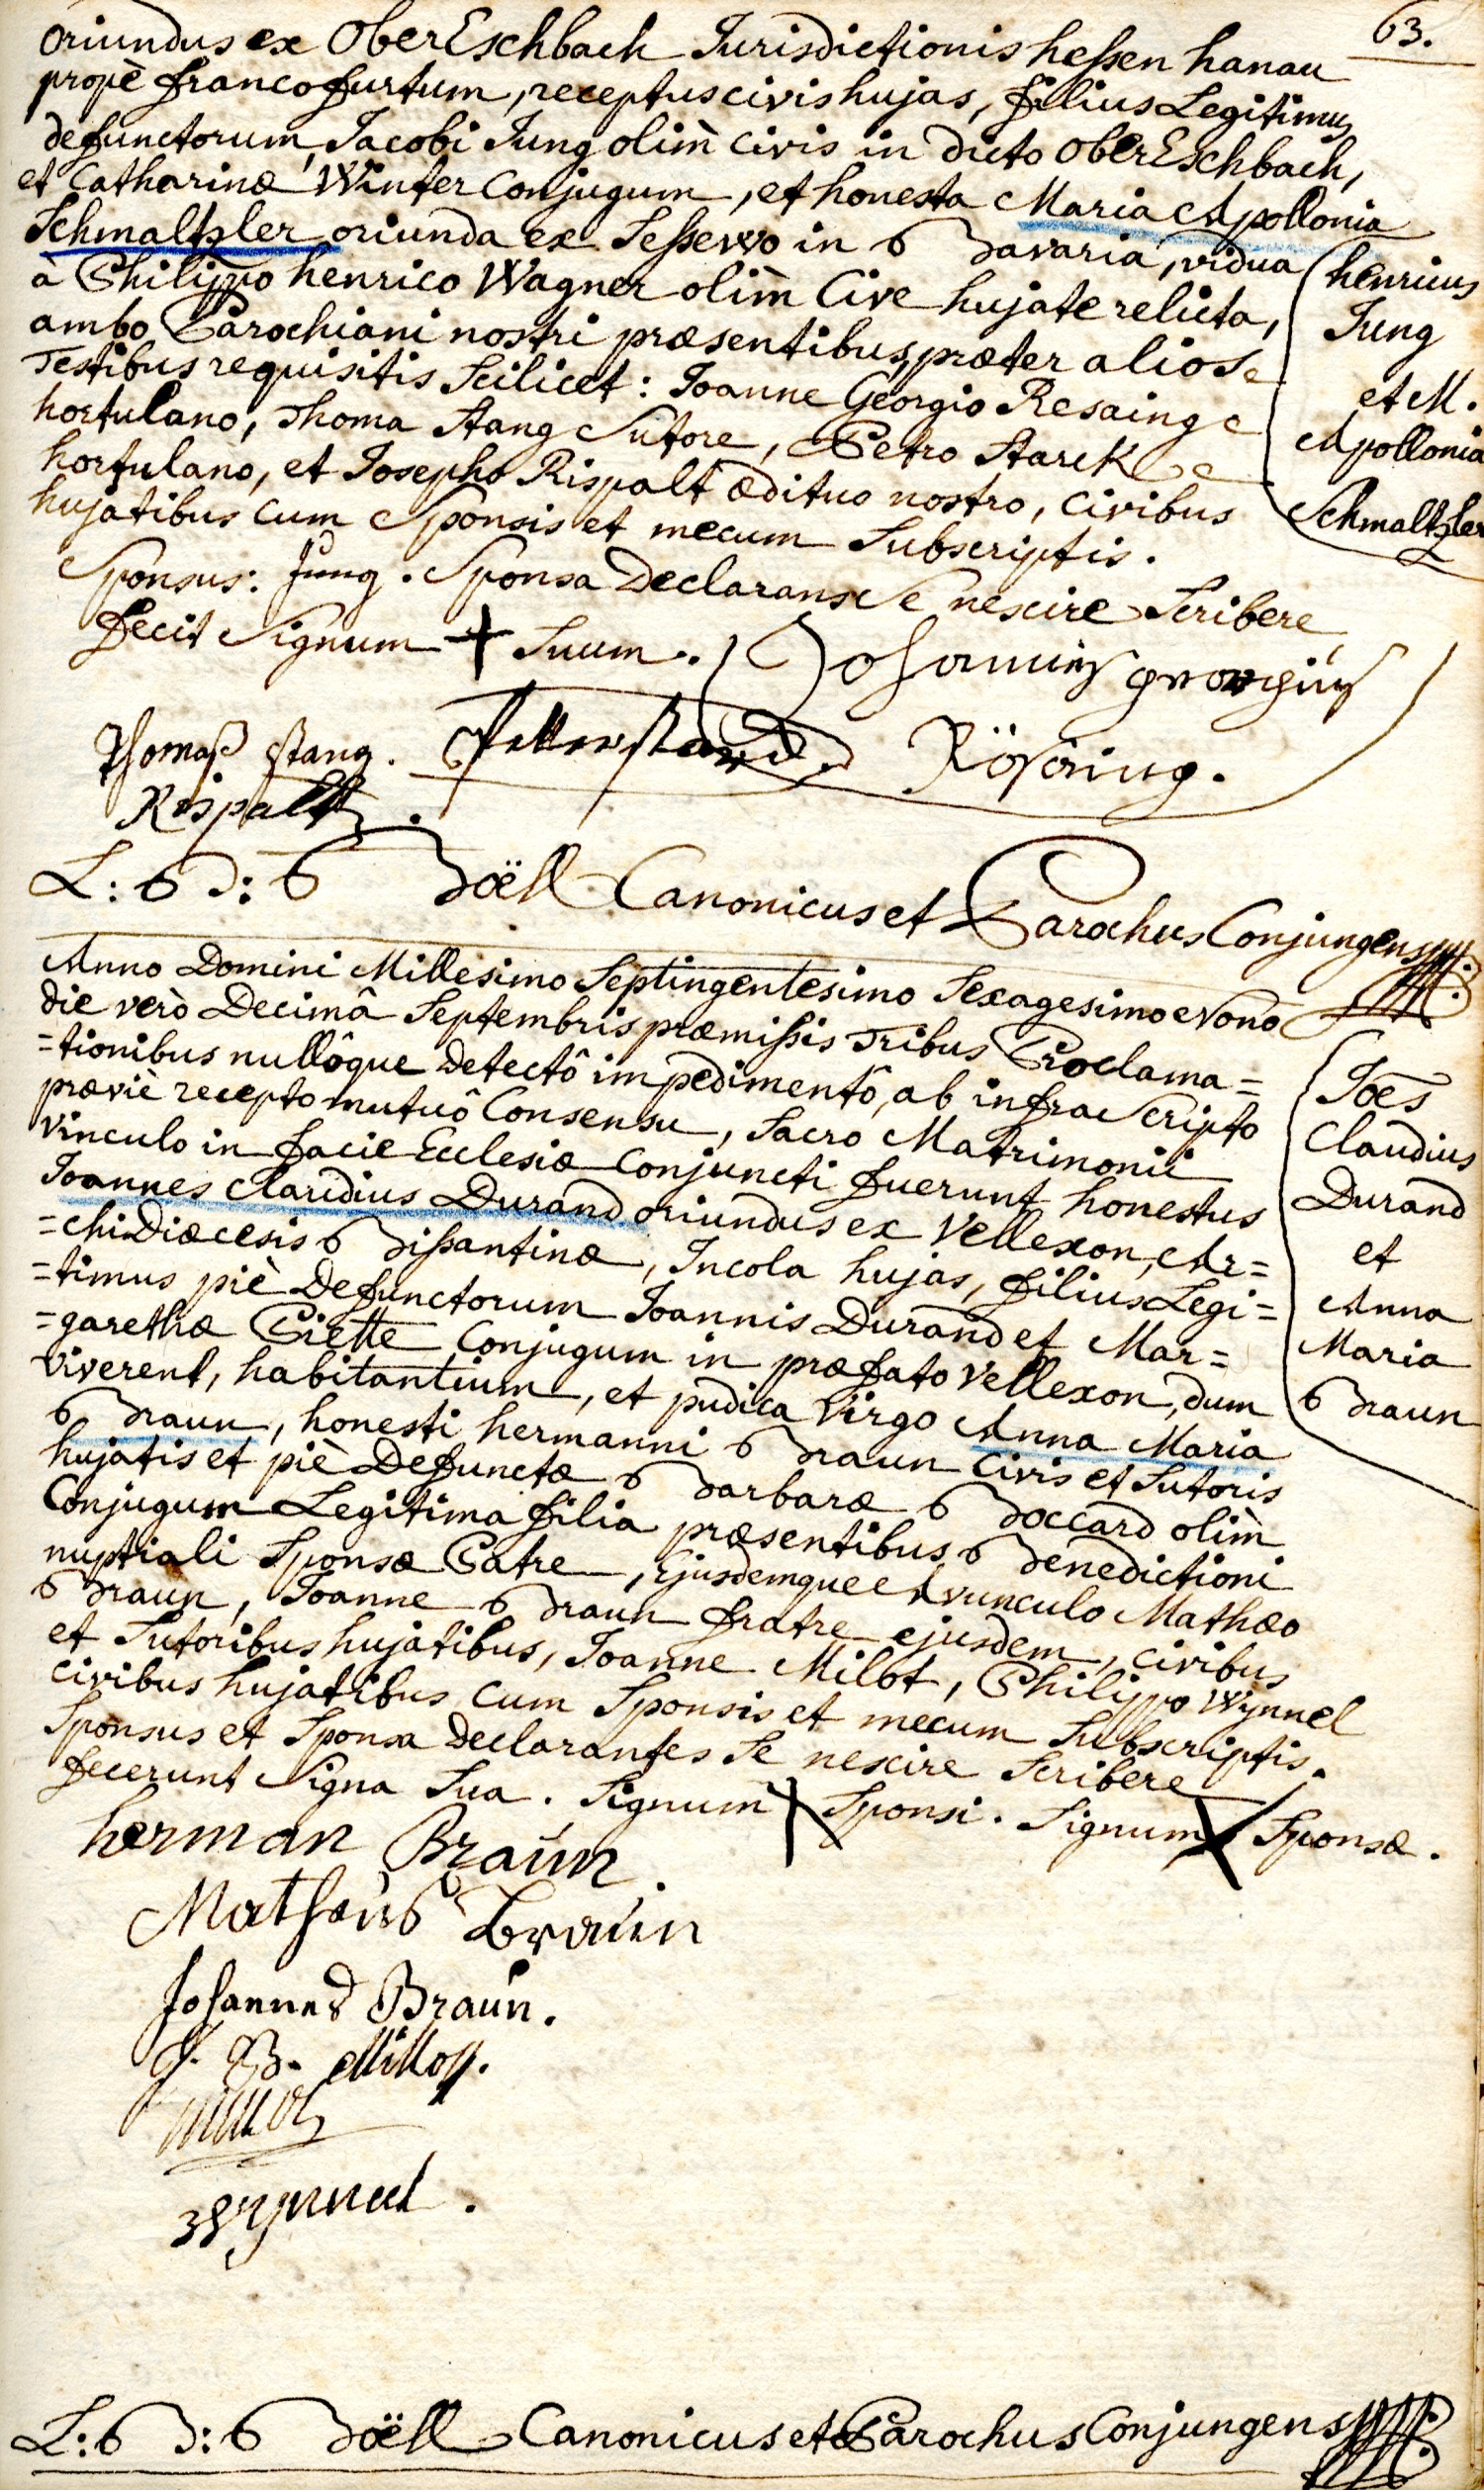 63.
oriundus ex OberEschbach Jurisdictionis hessen hanau
propè francofurtum, receptus civis hujas, filius Legitimus
defunctorum, Jacobi Jung olim civis in dicto OberEschbach,
et Catharinæ Winter Conjugum, et honesta Maria Apollonia
Schmaltzler oriunda ex in Bavaria, vidua
à Philippo henrico Wagner olim Cive hujate relicta,
ambo Parochiani nostri præsentibus, præter alios
Testibus requisitis Scilicet: Joanne Georgio Resaing
hortulano, Thoma Stang Sutore, Petro Starck
hortulano, et Josepho Rispalt ædituo nostro, civibus
hujatibus cum Sponsis et mecum Subscriptis.
henricus
Jung
et M.
Apollonia
Schmaltzler
Sponsus: Jung. Sponsa Declarans Se nescire Scribere
fecit Signum + Suum.
Johannes georgius
Rösaing.
Thomaß stang.
Rispalt.
L: B: Boëll Canonicus et Parochus Conjungens
Anno Domini Millesimo Septingentesimo Sexagesimo Nono
die verò Decimâ Septembris præmissis Tribus Proclama=
=tionibus nullôque Detectô impedimentô, ab infra Scripto
præviè recepto mutuô Consensu, Sacro Matrimonii
vinculo in facie Ecclesiæ Conjuncti fuerunt honestus
Joannes Claudius Durand oriundus ex Vellexon, Ar=
=chiDiæcesis Bissantinæ, Incola hujas, filius Legi=
=timus piè Defunctorum Joannis Durand et Mar=
=garethæ Piette Conjugum in præfato Vellexon, dum
viverent, habitantium, et pudica Virgo Anna Maria
Braun, honesti hermanni Braun Civis et Sutoris
hujatis et piè Defunctæ Barbaræ Boccard olim
Conjugum Legitima filia præsentibus Benedictioni
nuptiali Sponsæ Patre, Ejusdemque Avunculo Mathæo
Braun, Joanne Braun fratre ejusdem, civibus
et Sutoribus hujatibus, Joanne Milot, Philippo Wynnel
civibus hujatibus cum Sponsis et mecum Subscriptis.
Sponsus et Sponsa Declarantes Se nescire Scribere
fecerunt Signa Sua. Signum X Sponsi. Signum X Sponsæ.
Joes
Claudius
Durand
et
Anna
Maria
Braun
herman Braun.
Mathæus Braun
Johannes Braun.
J. B.
Wynnel.
L: B: Boëll Canonicus et Parochus Conjungens